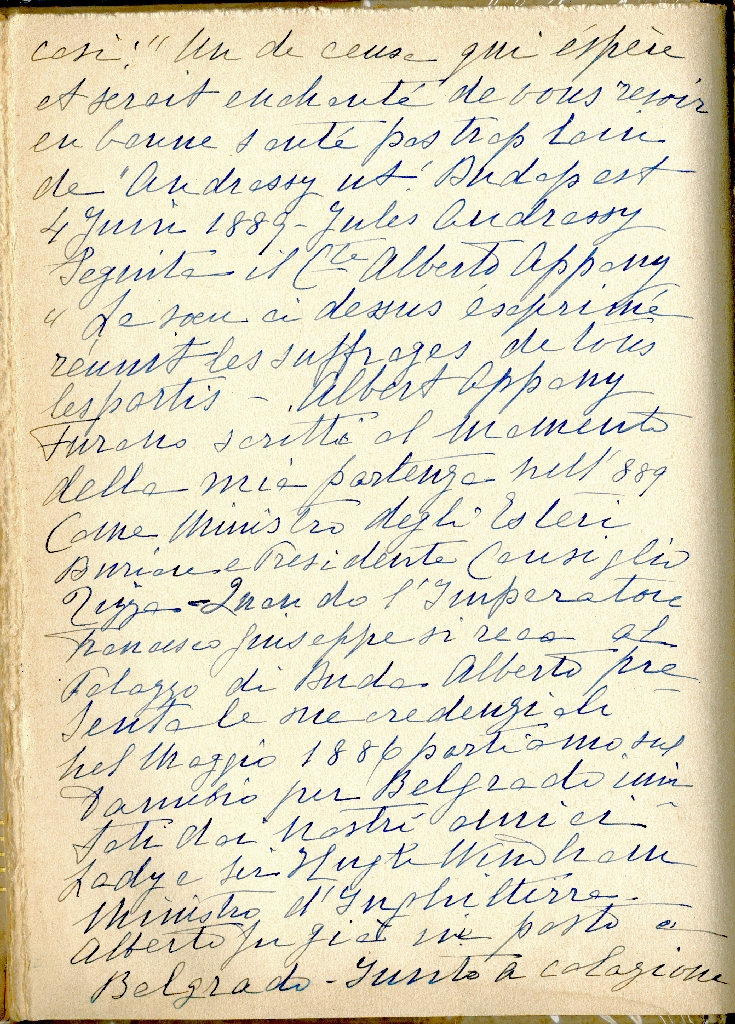 così: "Un de ceuse qui éspère
et serait enchanté de vous revoir
en bonne santé pas trop loin
de "Andrassy ut" Budapest
4 Juin 1889 - Jules Andrassy
Seguita il Cte Alberto Appony
" Le voeu ci dessus ésprimé
réunit les suffrages de tous
les partis - Albert Appony
Furono scritti al momento
della mia partenza nell' 889
Come Ministro degli Esteri
Burian e Presidente Consiglio
Tizza - Quando l'Imperatore
Francesco Giuseppe si reca al
Palazzo di Buda Alberto pre
senta le sue credenziali
nel Maggio 1886 partiamo sul
Danubio per Belgrado invi
tati dai nostri amici
Lady e Sir Hugh Windham
Ministro d'Inghilterra
Alberto fu già in posto a
Belgrado - Giunto a colazione